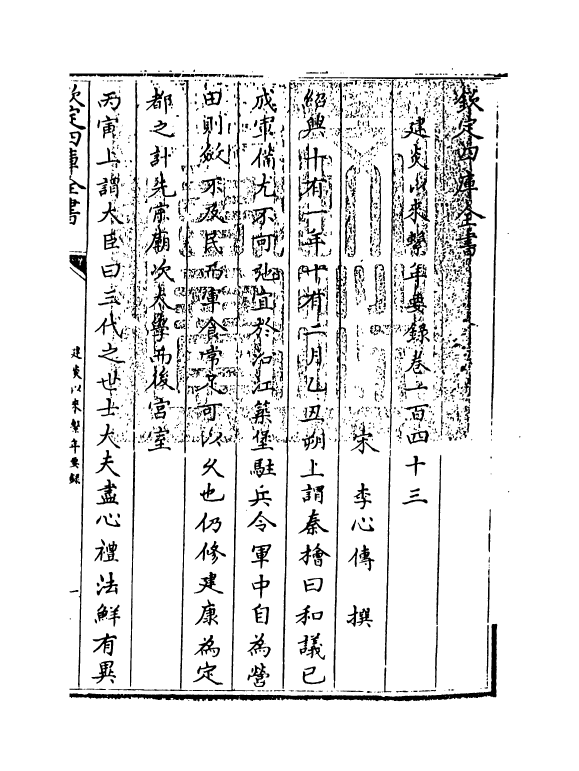 欽定四庫全書
建炎以來繫年要錄卷一百四十三
宋 李心傳 撰
紹興十有一年十有二月乙丑朔上謂秦檜曰和議已
成軍備尤不可弛宜於沿江築堡駐兵令軍中自為營
田則斂不及民而軍食常足可以久也仍修建康為定
都之計先宗廟次太學而後宮室
丙寅上謂大臣曰三代之世士大夫盡心禮法鮮有異
欽定四庫全書
建炎以來繫年要錄
一